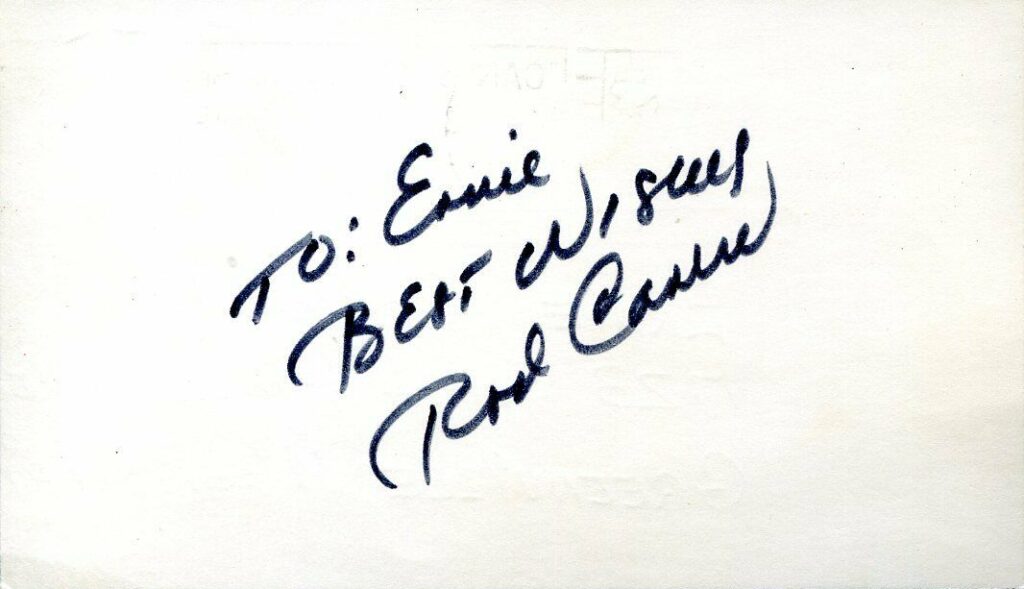 To: Ernie
BEST Wishes
Rod Carew